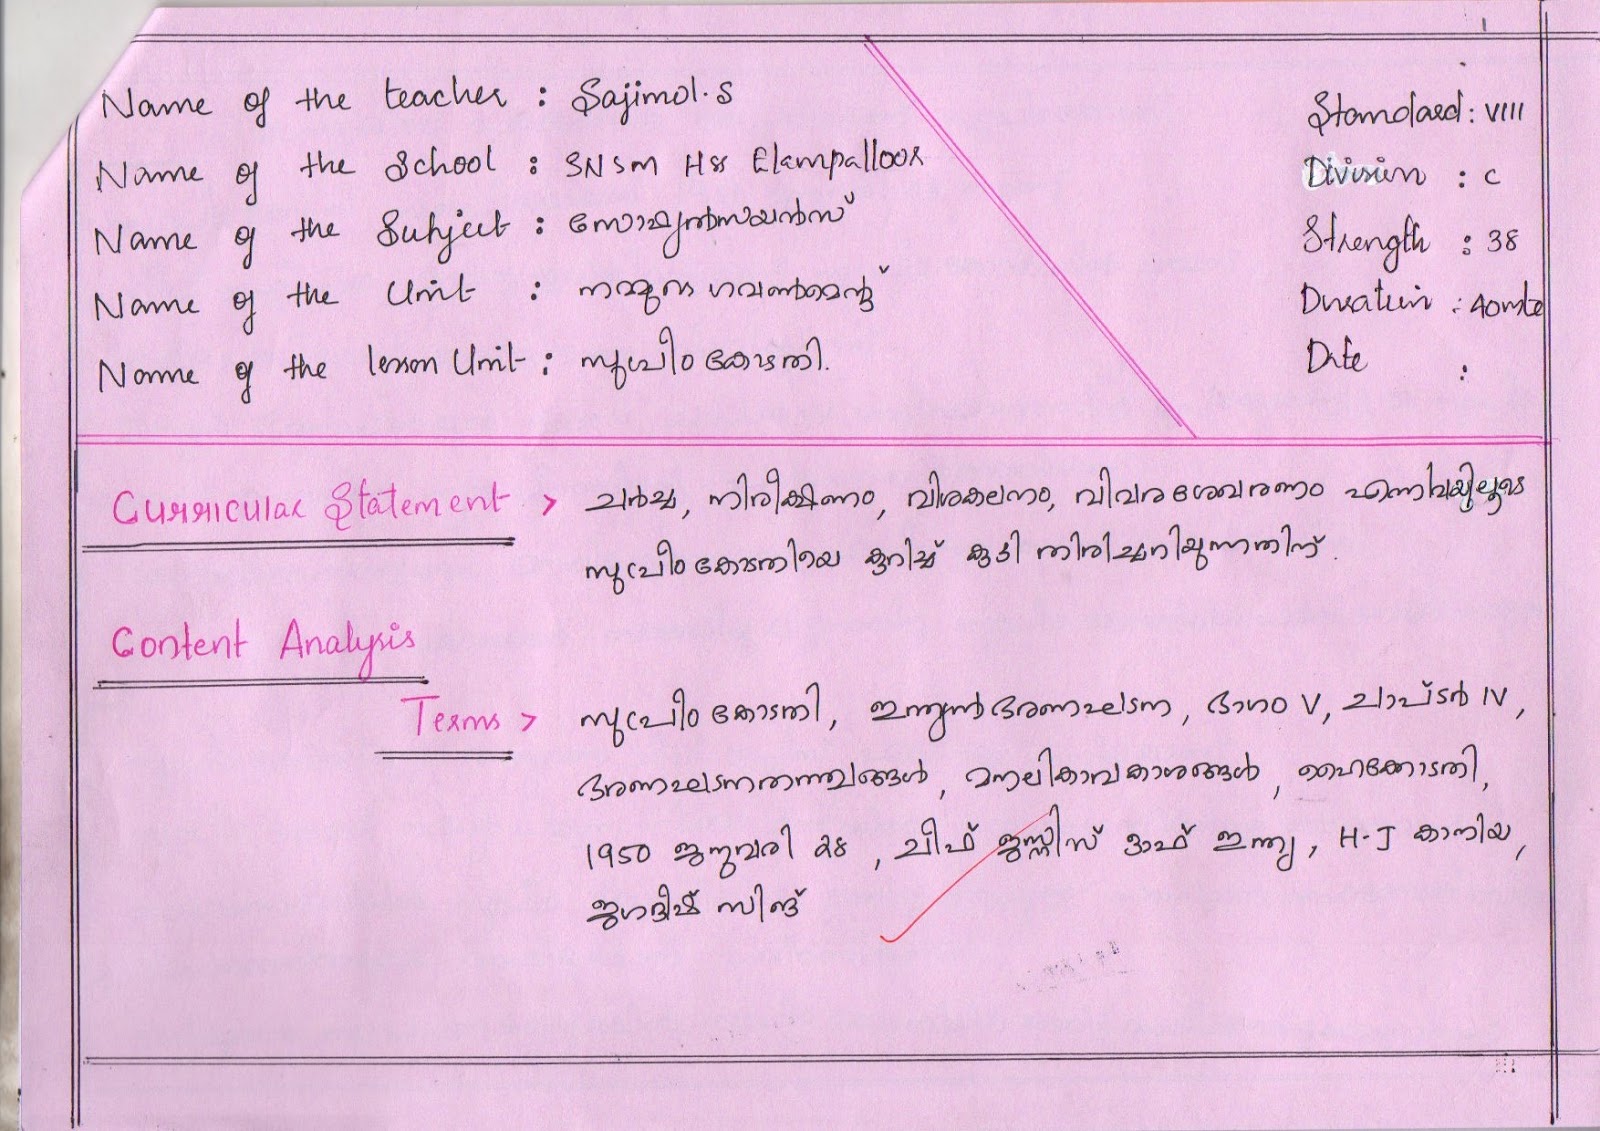 1
Name of the teacher : Sajimol.S
Standard : VIII
Name of the School : SNSM HSS Elampalloor
Division : C
Name of the Subject : സോഷ്യൽസയൻസ്
Strength : 38
Name of the Unit : നമ്മുടെ ഗവൺമെന്റ്
Duration : 40mte
Name of the lesson Unit : സുപ്രീം കോടതി.
Date :
Curricular Statement > ചർച്ച, നിരീക്ഷണം, വിശകലനം, വിവരശേഖരണം എന്നിവയിലൂടെ
സുപ്രീം കോടതിയെ കുറിച്ച് കുട്ടി തിരിച്ചറിയുന്നതിന്.
Content Analysis
Terms > സുപ്രീം കോടതി, ഇന്ത്യൻ ഭരണഘടന, ഭാഗം V, ചാപ്ടർ IV,
ഭരണഘടനതത്ത്വങ്ങൾ, മൗലികാവകാശങ്ങൾ, ഹൈക്കോടതി,
1950 ജനുവരി 28, ചീഫ് ജസ്റ്റിസ് ഓഫ് ഇന്ത്യ, H-J കാനിയ,
ജഗദീഷ് സിങ്